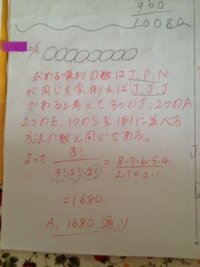 960
10080
求める順列の数は J, P, N
が同じ文字、例えば J, J, J
であると考えて 3つのJ, 2つのA
2つのE, 1つのSを1列に並べる
方法の数と同じである。
よって 8! / 3!2!2! = 8・7・6・5・4・ / 2・1×2・1
= 1680
A, 1680通り